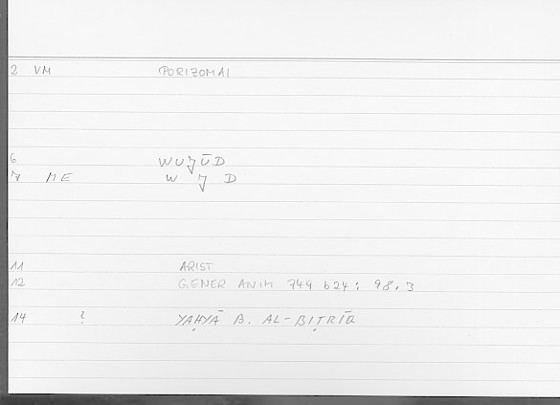 2 VM PORIZOMAI
6 WUJŪD
7 ME W J D
11 ARIST
12 GENER ANIM 749 b24; 98.3
14 ? YAḤYĀ B. AL-BIṬRĪQ